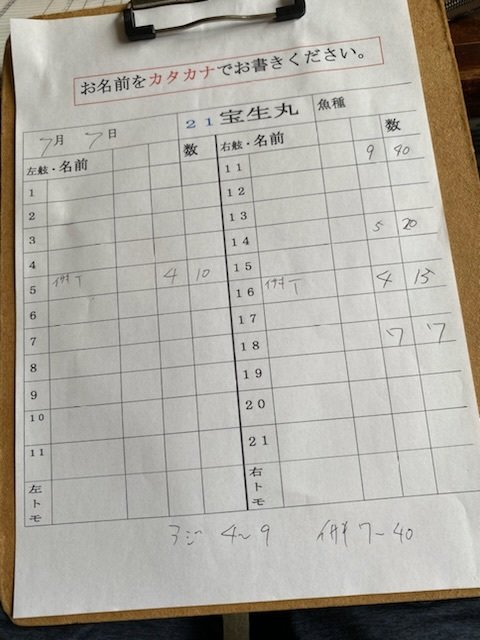 お名前をカタカナでお書きください。
7月 7日 21宝生丸 魚種
左舷・名前 数 右舷・名前 数
1 11 9 40
2 12
3 13
4 14 5 20
5 4 10 15
6 16 4 15
7 17
8 18 7 7
9 19
10 20
11 21
左トモ 右トモ
アジ 4〜9 イサキ 7〜40